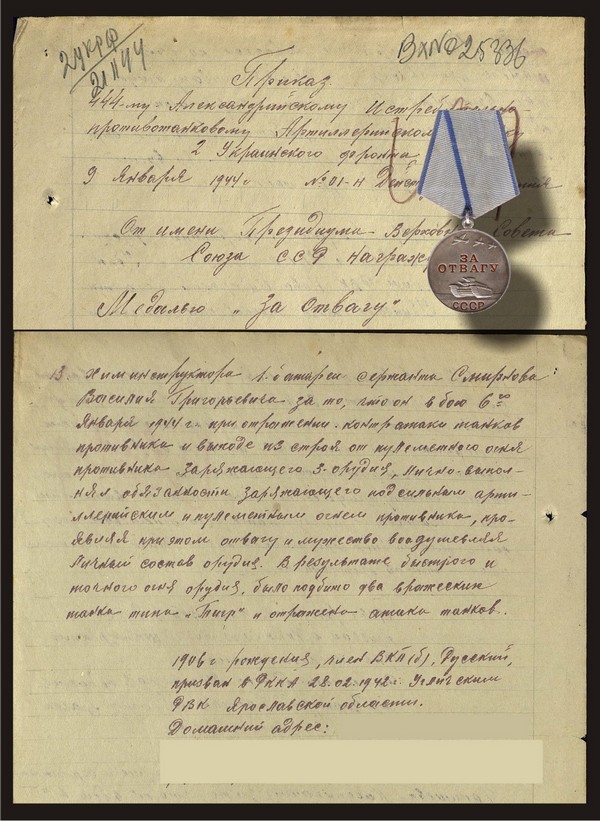 24КРФ
21 II 44
Вх№ 25336
Приказ
444-му Александрийскому Истребительно-
противотанковому Артиллерийскому
2 Украинского фронта
9 Января 1944 г № 01-Н
От имени Президиума Верховного Совета
Союза ССР Награж
Медалью „За Отвагу“:
ЗА
ОТВАГУ
СССР
13. Химинструктора 1-батареи сержанта Смирнова
Василия Григорьевича за то, что он в бою 6го
Января 1944 г при отражении контратаки танков
противника и выходе из строя от пулеметного огня
противника заряжающего 3-орудия, лично-выпол-
нял обязанности заряжающего под сильным арти-
ллерийским и пулеметным огнем противника, про-
являя при этом отвагу и мужество воодушевляя
личный состав орудия. В результате быстрого и
точного огня орудия, было подбито два вражеских
танка типа „Тигр“ и отражена атака танков.
1906 г рождения, член ВКП(б), Русский,
призван в РККА 28.02.1942 г. Угличским
РВК Ярославской области.
Домашний адрес: